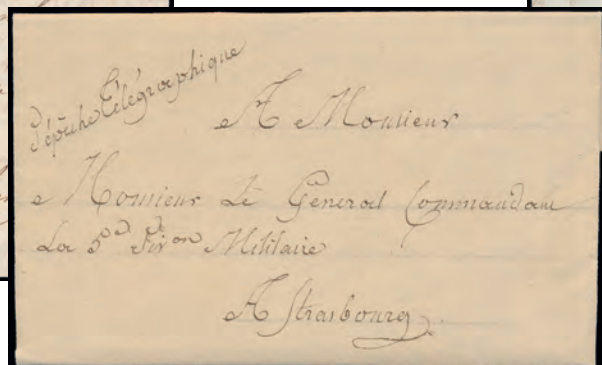 Dépêche Télégraphique
A Monsieur
Monsieur Le Général Commandant
La 5e Divon Militaire
A Strasbourg